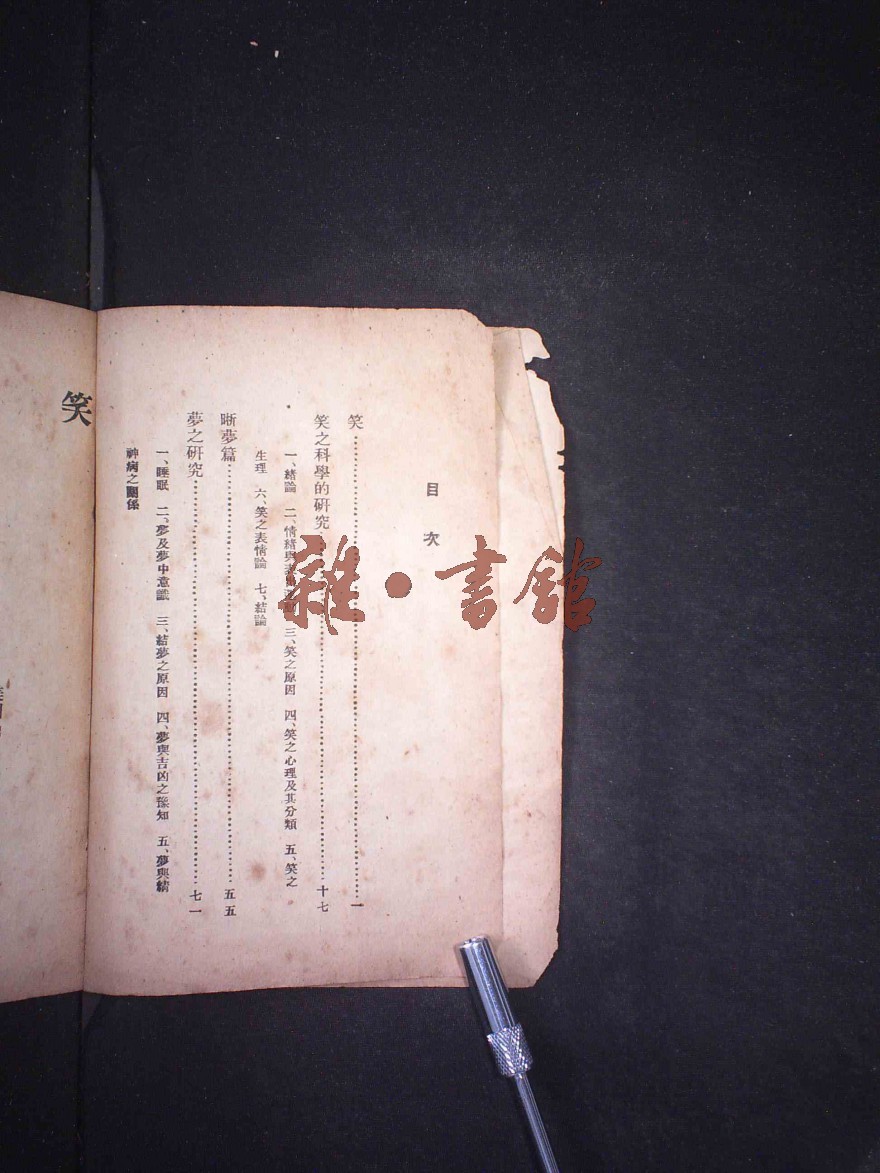 目次
笑……一
笑之科學的研究……十七
一、緒論　二、情緒與表　三、笑之原因　四、笑之心理及其分類　五、笑之
生理　六、笑之表情論　七、結論
晰夢篇……五五
夢之研究……七一
一、睡眠　二、夢及夢中意識　三、結夢之原因　四、夢與吉凶之豫知　五、夢與精
神病之關係
笑
雜·書館